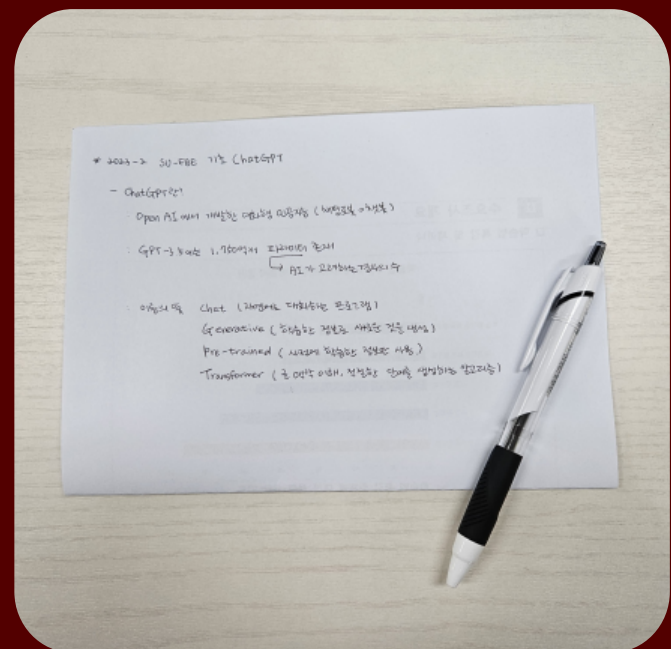 * 2023-2 SU-FBE 기초 ChatGPT
- ChatGPT란?
: Open AI에서 개발한 대화형 인공지능 (챗봇)
: GPT-3 1,750억개 파라미터 존재
↳ AI가 고려하는 경우의 수
: 이름의 뜻 Chat (대화하는 프로그램)
Generative (학습한 정보로 새로운 것을 생성)
Pre-trained (사전에 학습한 정보만 사용)
Transformer (글 맥락 이해, 적절한 단어를 생성하는 알고리즘)